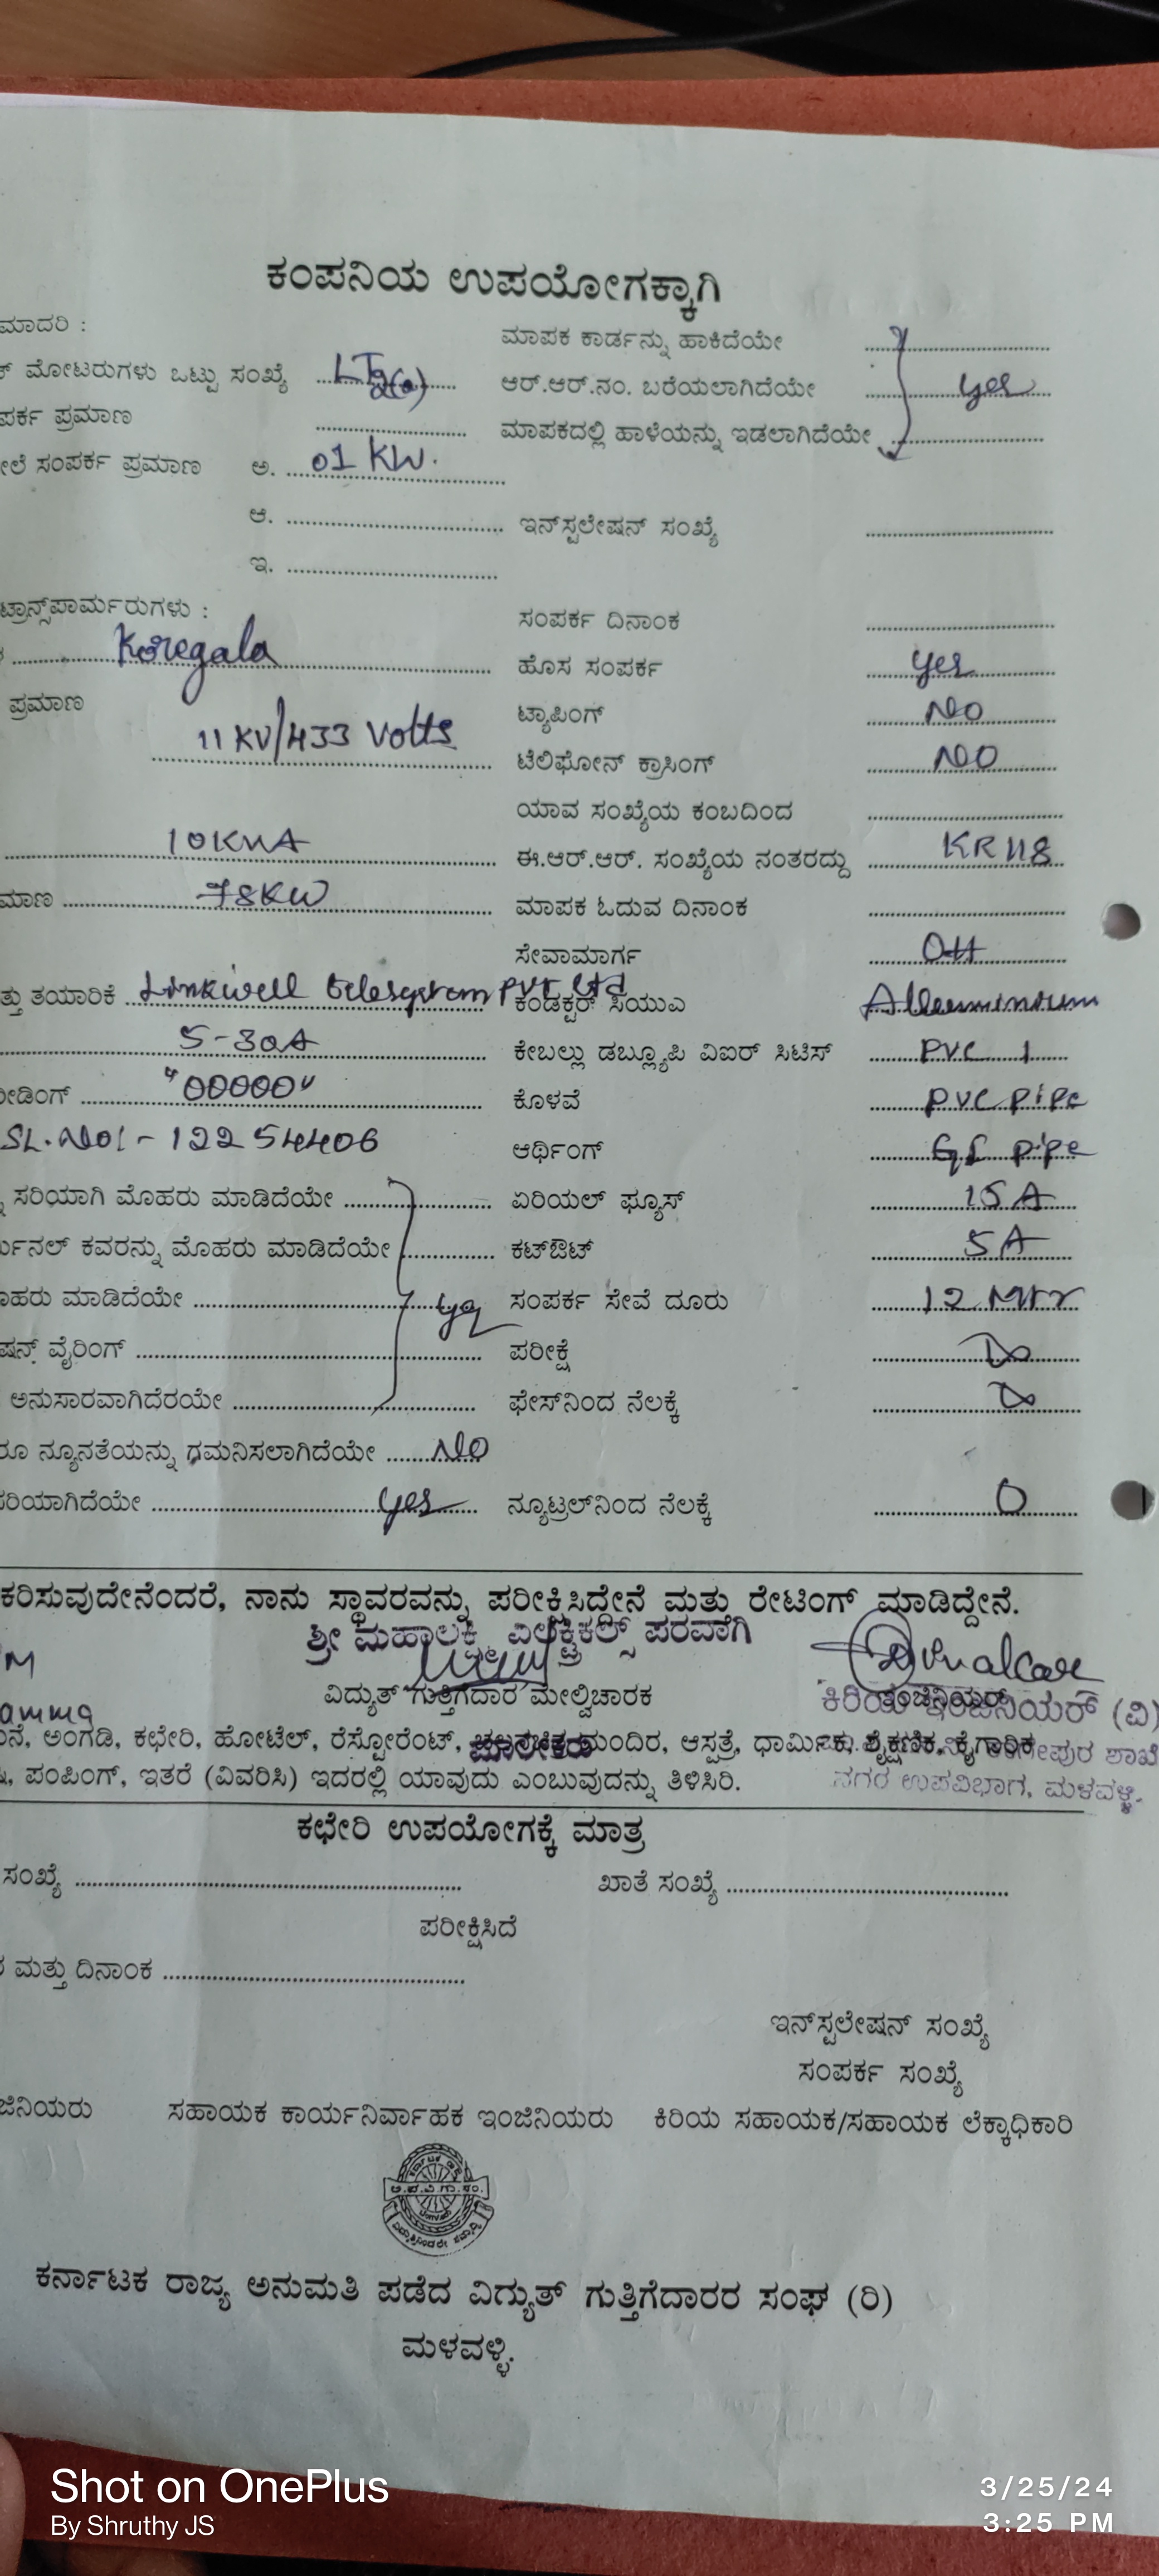 ಕಂಪನಿಯ ಉಪಯೋಗಕ್ಕಾಗಿ
ಮಾದರಿ : ಮಾಪಕ ಕಾರ್ಡನ್ನು ಹಾಕಿದೆಯೇ
ಮೋಟರುಗಳು ಒಟ್ಟು ಸಂಖ್ಯೆ ಆರ್.ಆರ್.ನಂ. ಬರೆಯಲಾಗಿದೆಯೇ yes
ಪರ್ಕ ಪ್ರಮಾಣ ಮಾಪಕದಲ್ಲಿ ಹಾಳೆಯನ್ನು ಇಡಲಾಗಿದೆಯೇ
ಲೆ ಸಂಪರ್ಕ ಪ್ರಮಾಣ ಅ. 01 KW.
ಆ. ಇನ್‌ಸ್ಟಲೇಷನ್ ಸಂಖ್ಯೆ
ಇ.
ಟ್ರಾನ್ಸ್‌ಪಾರ್ಮರುಗಳು : ಸಂಪರ್ಕ ದಿನಾಂಕ
Koregala ಹೊಸ ಸಂಪರ್ಕ yes
ಪ್ರಮಾಣ ಟ್ಯಾಪಿಂಗ್ NO
11 KV/433 Volts ಟೆಲಿಫೋನ್ ಕ್ರಾಸಿಂಗ್ NO
ಯಾವ ಸಂಖ್ಯೆಯ ಕಂಬದಿಂದ
ಈ.ಆರ್.ಆರ್. ಸಂಖ್ಯೆಯ ನಂತರದ್ದು KR118
ಮಾಣ 78KW ಮಾಪಕ ಓದುವ ದಿನಾಂಕ
ಸೇವಾಮಾರ್ಗ OH
ತ್ತು ತಯಾರಿಕೆ Linkwell Telesystem PVT Ltd ಕಂಡಕ್ಟರ್ ಸಿಯುಎ
5-30A ಕೇಬಲ್ಲು ಡಬ್ಲ್ಯೂಪಿ ವಿಐರ್ ಸಿಟಿಸ್ PVC 1
ೀಡಿಂಗ್ "00000" ಕೊಳವೆ PVC pipe
SL.No:- 12254406 ಆರ್ಥಿಂಗ್ GI pipe
ಸರಿಯಾಗಿ ಮೊಹರು ಮಾಡಿದೆಯೇ ಏರಿಯಲ್ ಫ್ಯೂಸ್ 15A
ರ್ಮಿನಲ್ ಕವರನ್ನು ಮೊಹರು ಮಾಡಿದೆಯೇ ಕಟ್‌ಔಟ್ 5A
ೊಹರು ಮಾಡಿದೆಯೇ yes ಸಂಪರ್ಕ ಸೇವೆ ದೂರು 12 Mtr
ಷನ್ ವೈರಿಂಗ್ ಪರೀಕ್ಷೆ ∞
ಅನುಸಾರವಾಗಿದೆರಯೇ ಫೇಸ್‌ನಿಂದ ನೆಲಕ್ಕೆ ∞
ರೂ ನ್ಯೂನತೆಯನ್ನು ಗಮನಿಸಲಾಗಿದೆಯೇ NO
ರಿಯಾಗಿದೆಯೇ yes ನ್ಯೂಟ್ರಲ್‌ನಿಂದ ನೆಲಕ್ಕೆ 0
ಕರಿಸುವುದೇನೆಂದರೆ, ನಾನು ಸ್ಥಾವರವನ್ನು ಪರೀಕ್ಷಿಸಿದ್ದೇನೆ ಮತ್ತು ರೇಟಿಂಗ್ ಮಾಡಿದ್ದೇನೆ.
ಶ್ರೀ ಮಹಾಲಕ್ಷ್ಮಿ ಎಲೆಕ್ಟ್ರಿಕಲ್ಸ್ ಪರವಾಗಿ
ವಿದ್ಯುತ್ ಗುತ್ತಿಗೆದಾರ ಮೇಲ್ವಿಚಾರಕ ಕಿರಿಯ ಇಂಜಿನಿಯರ್ (ವಿ)
ನೆ, ಅಂಗಡಿ, ಕಛೇರಿ, ಹೋಟೆಲ್, ರೆಸ್ಟೋರೆಂಟ್, ಚಲನಚಿತ್ರ ಮಂದಿರ, ಆಸ್ಪತ್ರೆ, ಧಾರ್ಮಿಕ, ಶೈಕ್ಷಣಿಕ, ಕೈಗಾರಿಕ
ಮಾಲೀಕರು
ಪಂಪಿಂಗ್, ಇತರೆ (ವಿವರಿಸಿ) ಇದರಲ್ಲಿ ಯಾವುದು ಎಂಬುವುದನ್ನು ತಿಳಿಸಿರಿ. ನಗರ ಉಪವಿಭಾಗ, ಮಳವಳ್ಳಿ.
ಕಛೇರಿ ಉಪಯೋಗಕ್ಕೆ ಮಾತ್ರ
ಸಂಖ್ಯೆ ಖಾತೆ ಸಂಖ್ಯೆ
ಪರೀಕ್ಷಿಸಿದೆ
ಮತ್ತು ದಿನಾಂಕ
ಇನ್‌ಸ್ಟಲೇಷನ್ ಸಂಖ್ಯೆ
ಸಂಪರ್ಕ ಸಂಖ್ಯೆ
ಜಿನಿಯರು ಸಹಾಯಕ ಕಾರ್ಯನಿರ್ವಾಹಕ ಇಂಜಿನಿಯರು ಕಿರಿಯ ಸಹಾಯಕ/ಸಹಾಯಕ ಲೆಕ್ಕಾಧಿಕಾರಿ
ಕರ್ನಾಟಕ ರಾಜ್ಯ ಅನುಮತಿ ಪಡೆದ ವಿದ್ಯುತ್ ಗುತ್ತಿಗೆದಾರರ ಸಂಘ (ರಿ)
ಮಳವಳ್ಳಿ.
Shot on OnePlus
By Shruthy JS
3/25/24
3:25 PM